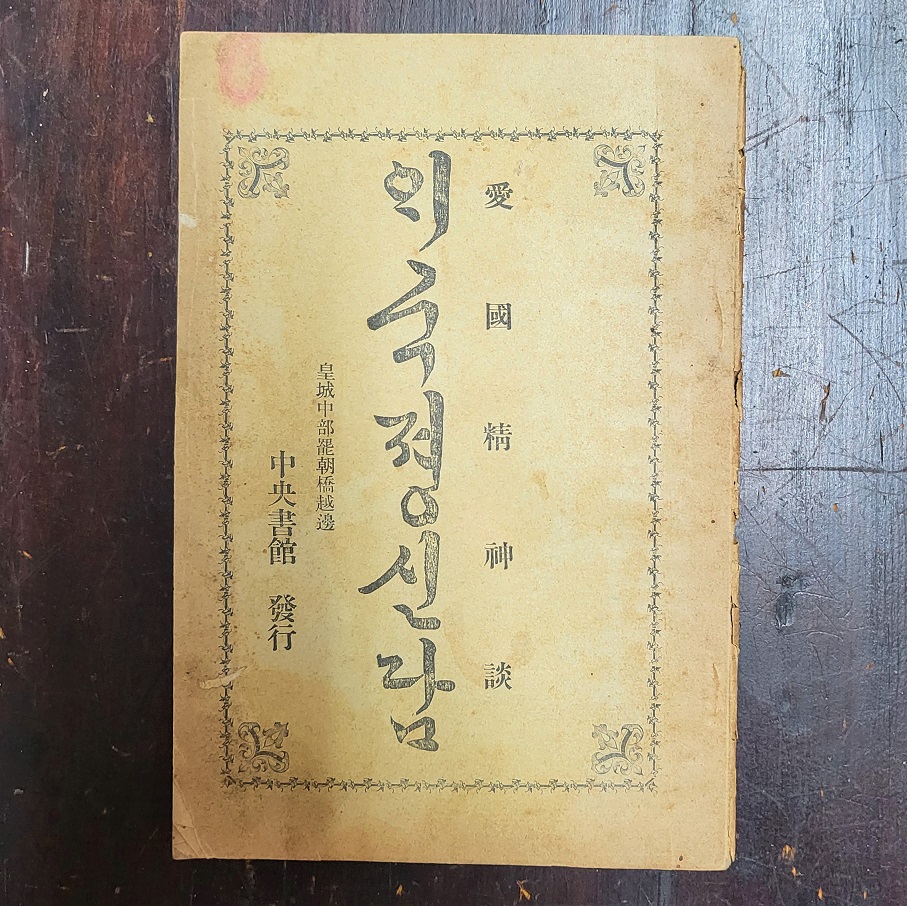 愛國精神談
ᄋᆡ국졍신담
皇城中部罷朝橋越邊
中央書館 發行